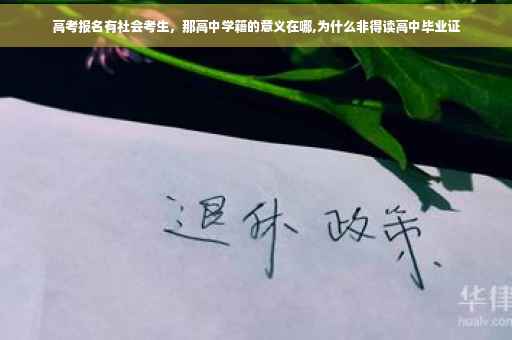 高考报名有社会考生，那高中学籍的意义在哪,为什么非得读高中毕业证
退休 政策
华律
hualv.com